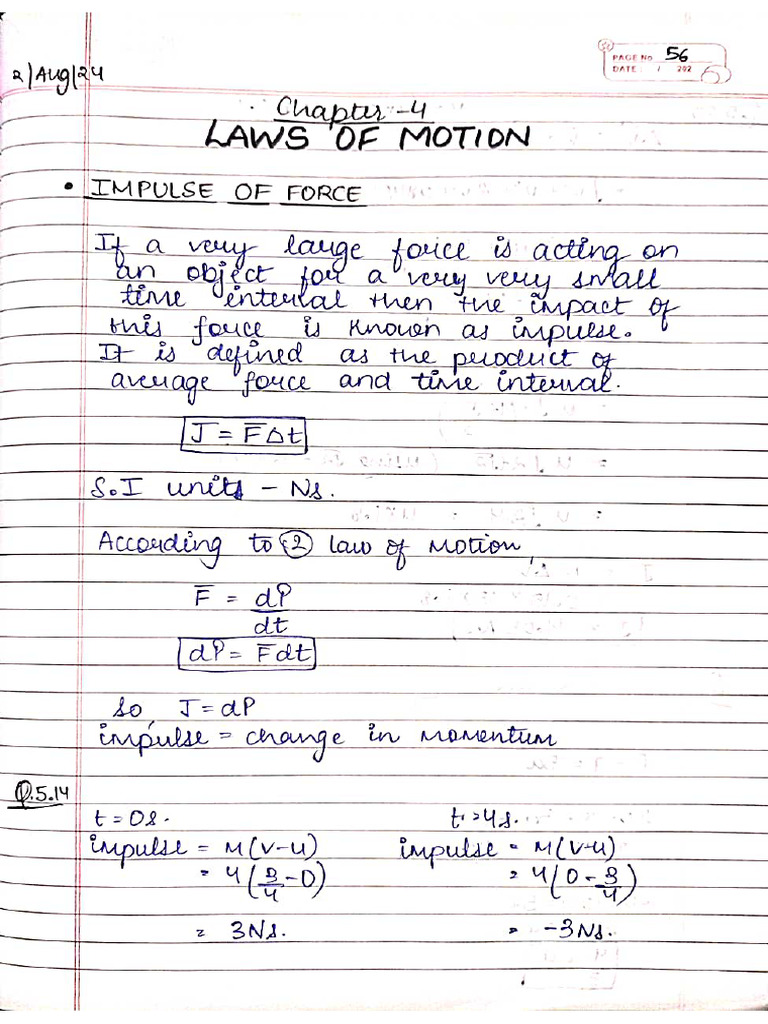 2/Aug/24
PAGE No 56
DATE: / 202
Chapter-4
LAWS OF MOTION
• IMPULSE OF FORCE
If a very large force is acting on
an object for a very very small
time interval then the impact of
this force is known as impulse.
It is defined as the product of
average force and time interval.
J = F̅Δt
S.I units - Ns.
According to ② law of motion,
F̅ = dP/dt
dP = F̅dt
So, J = dP
impulse = change in momentum
Q.5.14
t = 0s.
impulse = M(V-U)
= 4(3/4 - 0)
= 3Ns.
t = 4s.
impulse = M(V-U)
= 4(0 - 3/4)
= -3Ns.